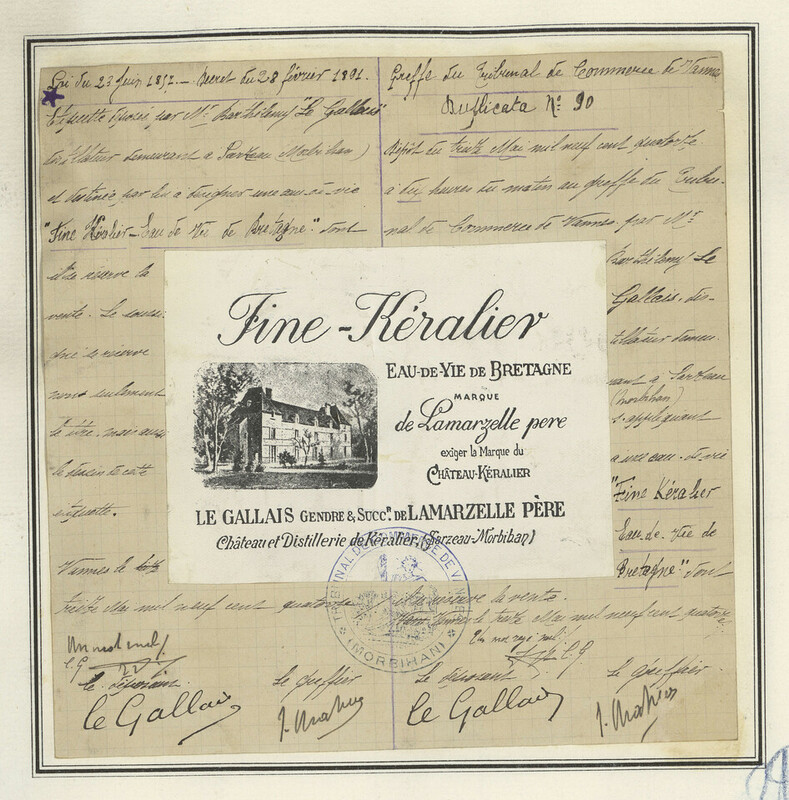 Loi du 23 Juin 1857. — Decret du 28 février 1891.
Etiquette déposée par Mr Barthélemy "Le Gallais"
distillateur demeurant à Sarzeau (Morbihan)
et destinée par lui à désigner une eau-de-vie
"Fine Kéralier - Eau de Vie de Bretagne" dont
il se réserve la
vente. Le
se réserve
non seulement
le titre, mais aussi
le dessin de cette
etiquette.
Vannes le
treize Mai mil neuf cent quatorze
Un mot nul
L G
Le déposant
Le Greffier
le Gallais
J. Mahieu
Greffe du Tribunal de Commerce de Vannes
Duplicata No 90
Dépôt du treize Mai mil neuf cent quatorze
à dix heures du matin au greffe du Tribu-
nal de Commerce de Vannes, par Mr
Barthélemy Le
Gallais, dis-
tillateur demeu-
rant à Sarzeau
(Morbihan)
s'appliquant
à une eau-de-vie
"Fine Kéralier
Eau-de-Vie de
Bretagne" dont
il se réserve la vente.
Vannes le treize Mai mil neuf cent quatorze
Un mot rayé nul
L. G.
Le déposant
Le Greffier
le Gallais
J. Mahieu
Fine-Kéralier
EAU-DE-VIE DE BRETAGNE
MARQUE
de Lamarzelle pere
exiger la Marque du
CHÂTEAU-KÉRALIER
LE GALLAIS GENDRE & SUCCR. DE LAMARZELLE PÈRE
Château et Distillerie de Kéralier, (Sorzeau-Morbihan)
TRIBUNAL DE COMMERCE DE VANNES
(MORBIHAN)